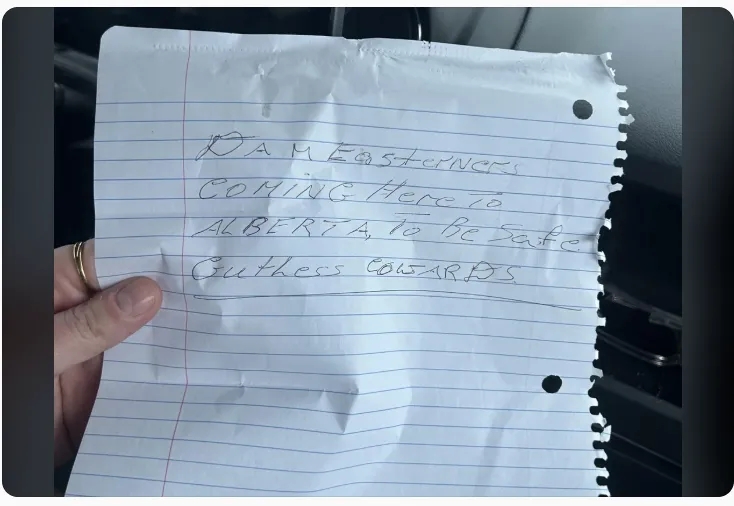 DAM Easterners
COMING Here To
ALBERTA, To Be Safe
Gutless COWARDS